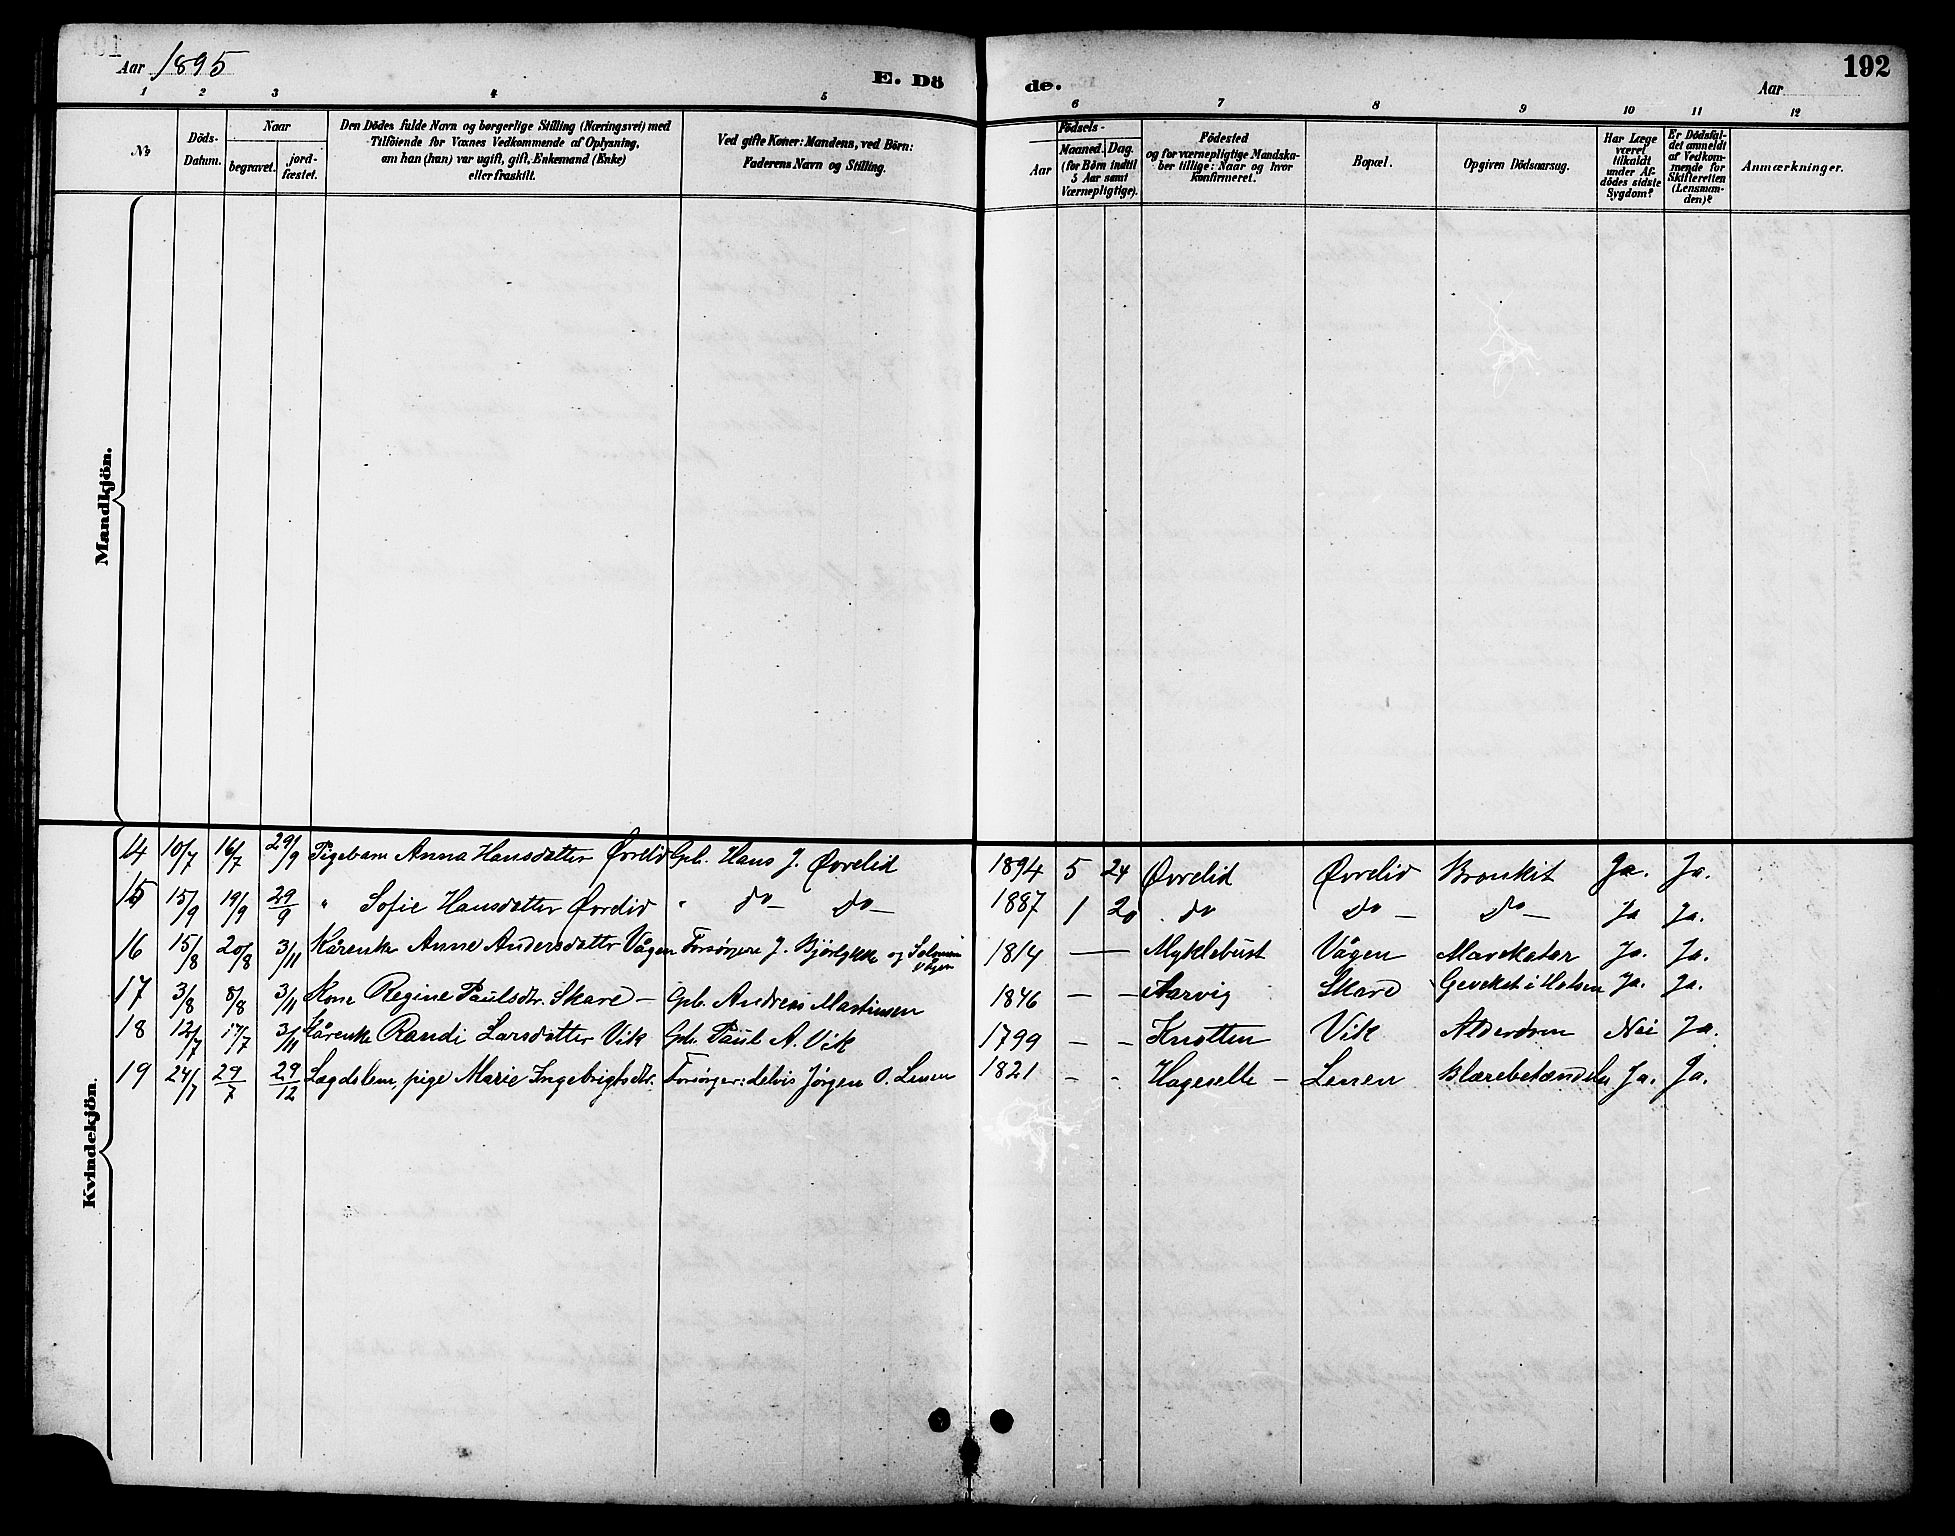 Aar 1895
E. Dö de.
Aar
192
1 2 3 4 5 6 7 8 9 10 11 12
No
Döds-Datum.
Naar
begravet.
jord-fæstet.
Den Dödes fulde Navn og borgerlige Stilling (Næringsvei) med
Tilföiende for Voxnes Vedkommende af Oplysning,
om han (hun) var ugift, gift, Enkemand (Enke)
eller fraskilt.
Ved gifte Koner: Mandens, ved Börn:
Faderens Navn og Stilling.
Födsels-
Aar
Maaned. Dag.
(for Börn indtil
5 Aar samt
Værnepligtige).
Födested
og for værnepligtige Mandska-
ber tillige: Naar og hvor
konfirmeret.
Bopæl.
Opgiven Dödsaarsag.
Har Læge
været
tilkaldt
under Af-
dödes sidste
Sygdom?
Er Dödsfal-
det anmeldt
af Vedkom-
mende for
Skifteretten
(Lensman-
den)?
Anmærkninger.
Mandkjön.
Kvindekjön.
14 10/7 16/7 29/9 Pigebarn Anna Hansdatter Øvrelid Gpb. Hans J. Øvrelid 1894 5 24 Øvrelid Øvrelid Bronkit Ja. Ja.
15 15/9 19/9 29/9 " Sofie Hansdatter Øvrelid " do — do — 1887 1 20 do do — do — Ja Ja.
16 15/8 20/8 3/11 Kårenke Anne Andersdattr Vågen Forsørgere J. Bjørlykke og Salomon Vågen 1814 — Myklebust Vågen Mavekatar Ja. Ja.
17 3/8 8/8 3/11 Kone Regine Paulsdtr. Skare — Gpb. Andreas Martinsen 1846 — — Aarvig Skare Gevekst i Halsen Ja. Ja.
18 12/7 17/7 3/11 Kårenke Randi Larsdatter Vik Gpb. Paul A. Vik 1799 — — Knotten Vik Alderdom Nei Ja.
19 24/7 29/7 29/12 Lægdslem, pige Marie Ingebrigtsdtr. Forsørger: delvis Jørgen O. Lenen 1821 - - Hageselle — Lenen Blærebetændelse Ja. Ja.